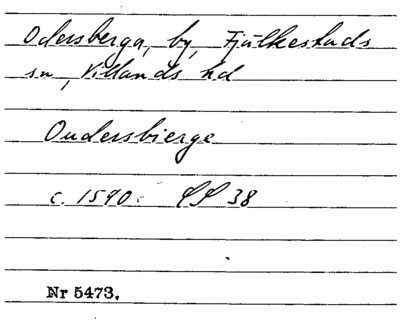 Odersberga, by, Fjälkestads
sn, Villands hd
Oudersbierge
c. 1590. 38
Nr 5473.